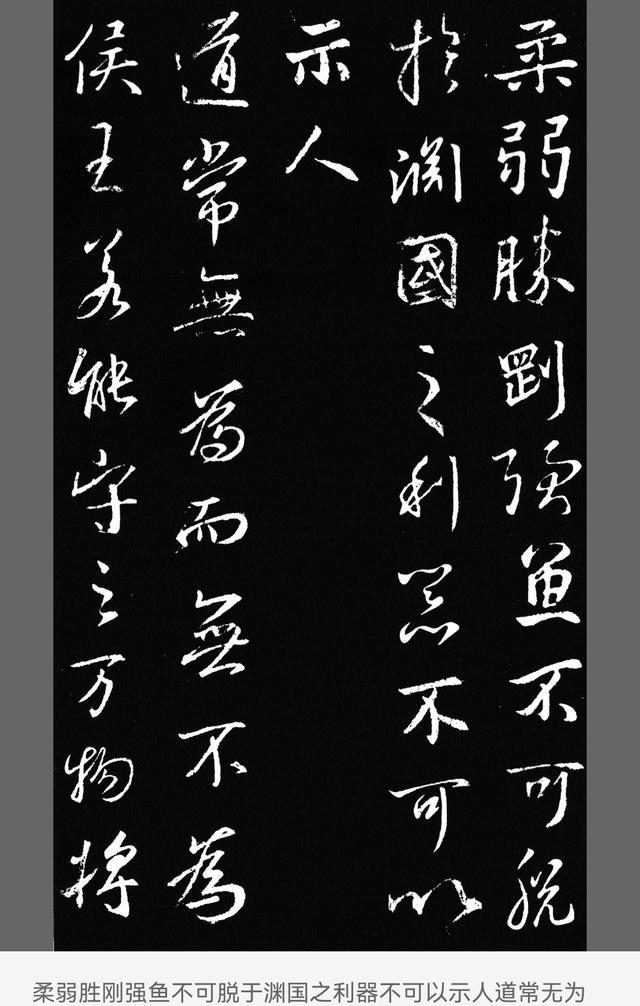 柔弱勝剛强魚不可脫
於渊國之利器不可以
示人
道常無為而無不為
侯王若能守之万物將
柔弱胜刚强鱼不可脱于渊国之利器不可以示人道常无为